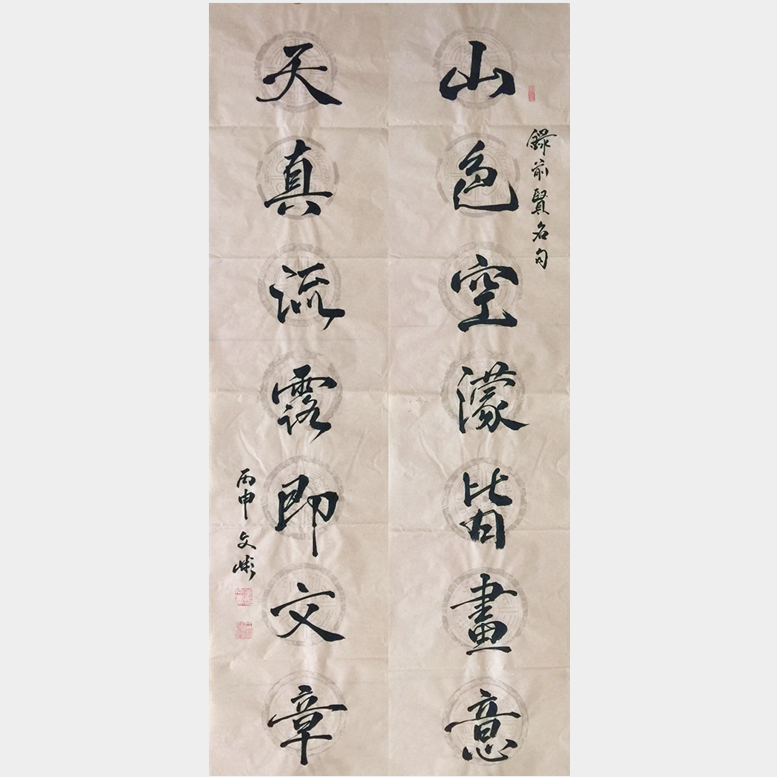 山色空濛皆畫意
錄前賢名句
天真流露即文章
丙申文彬